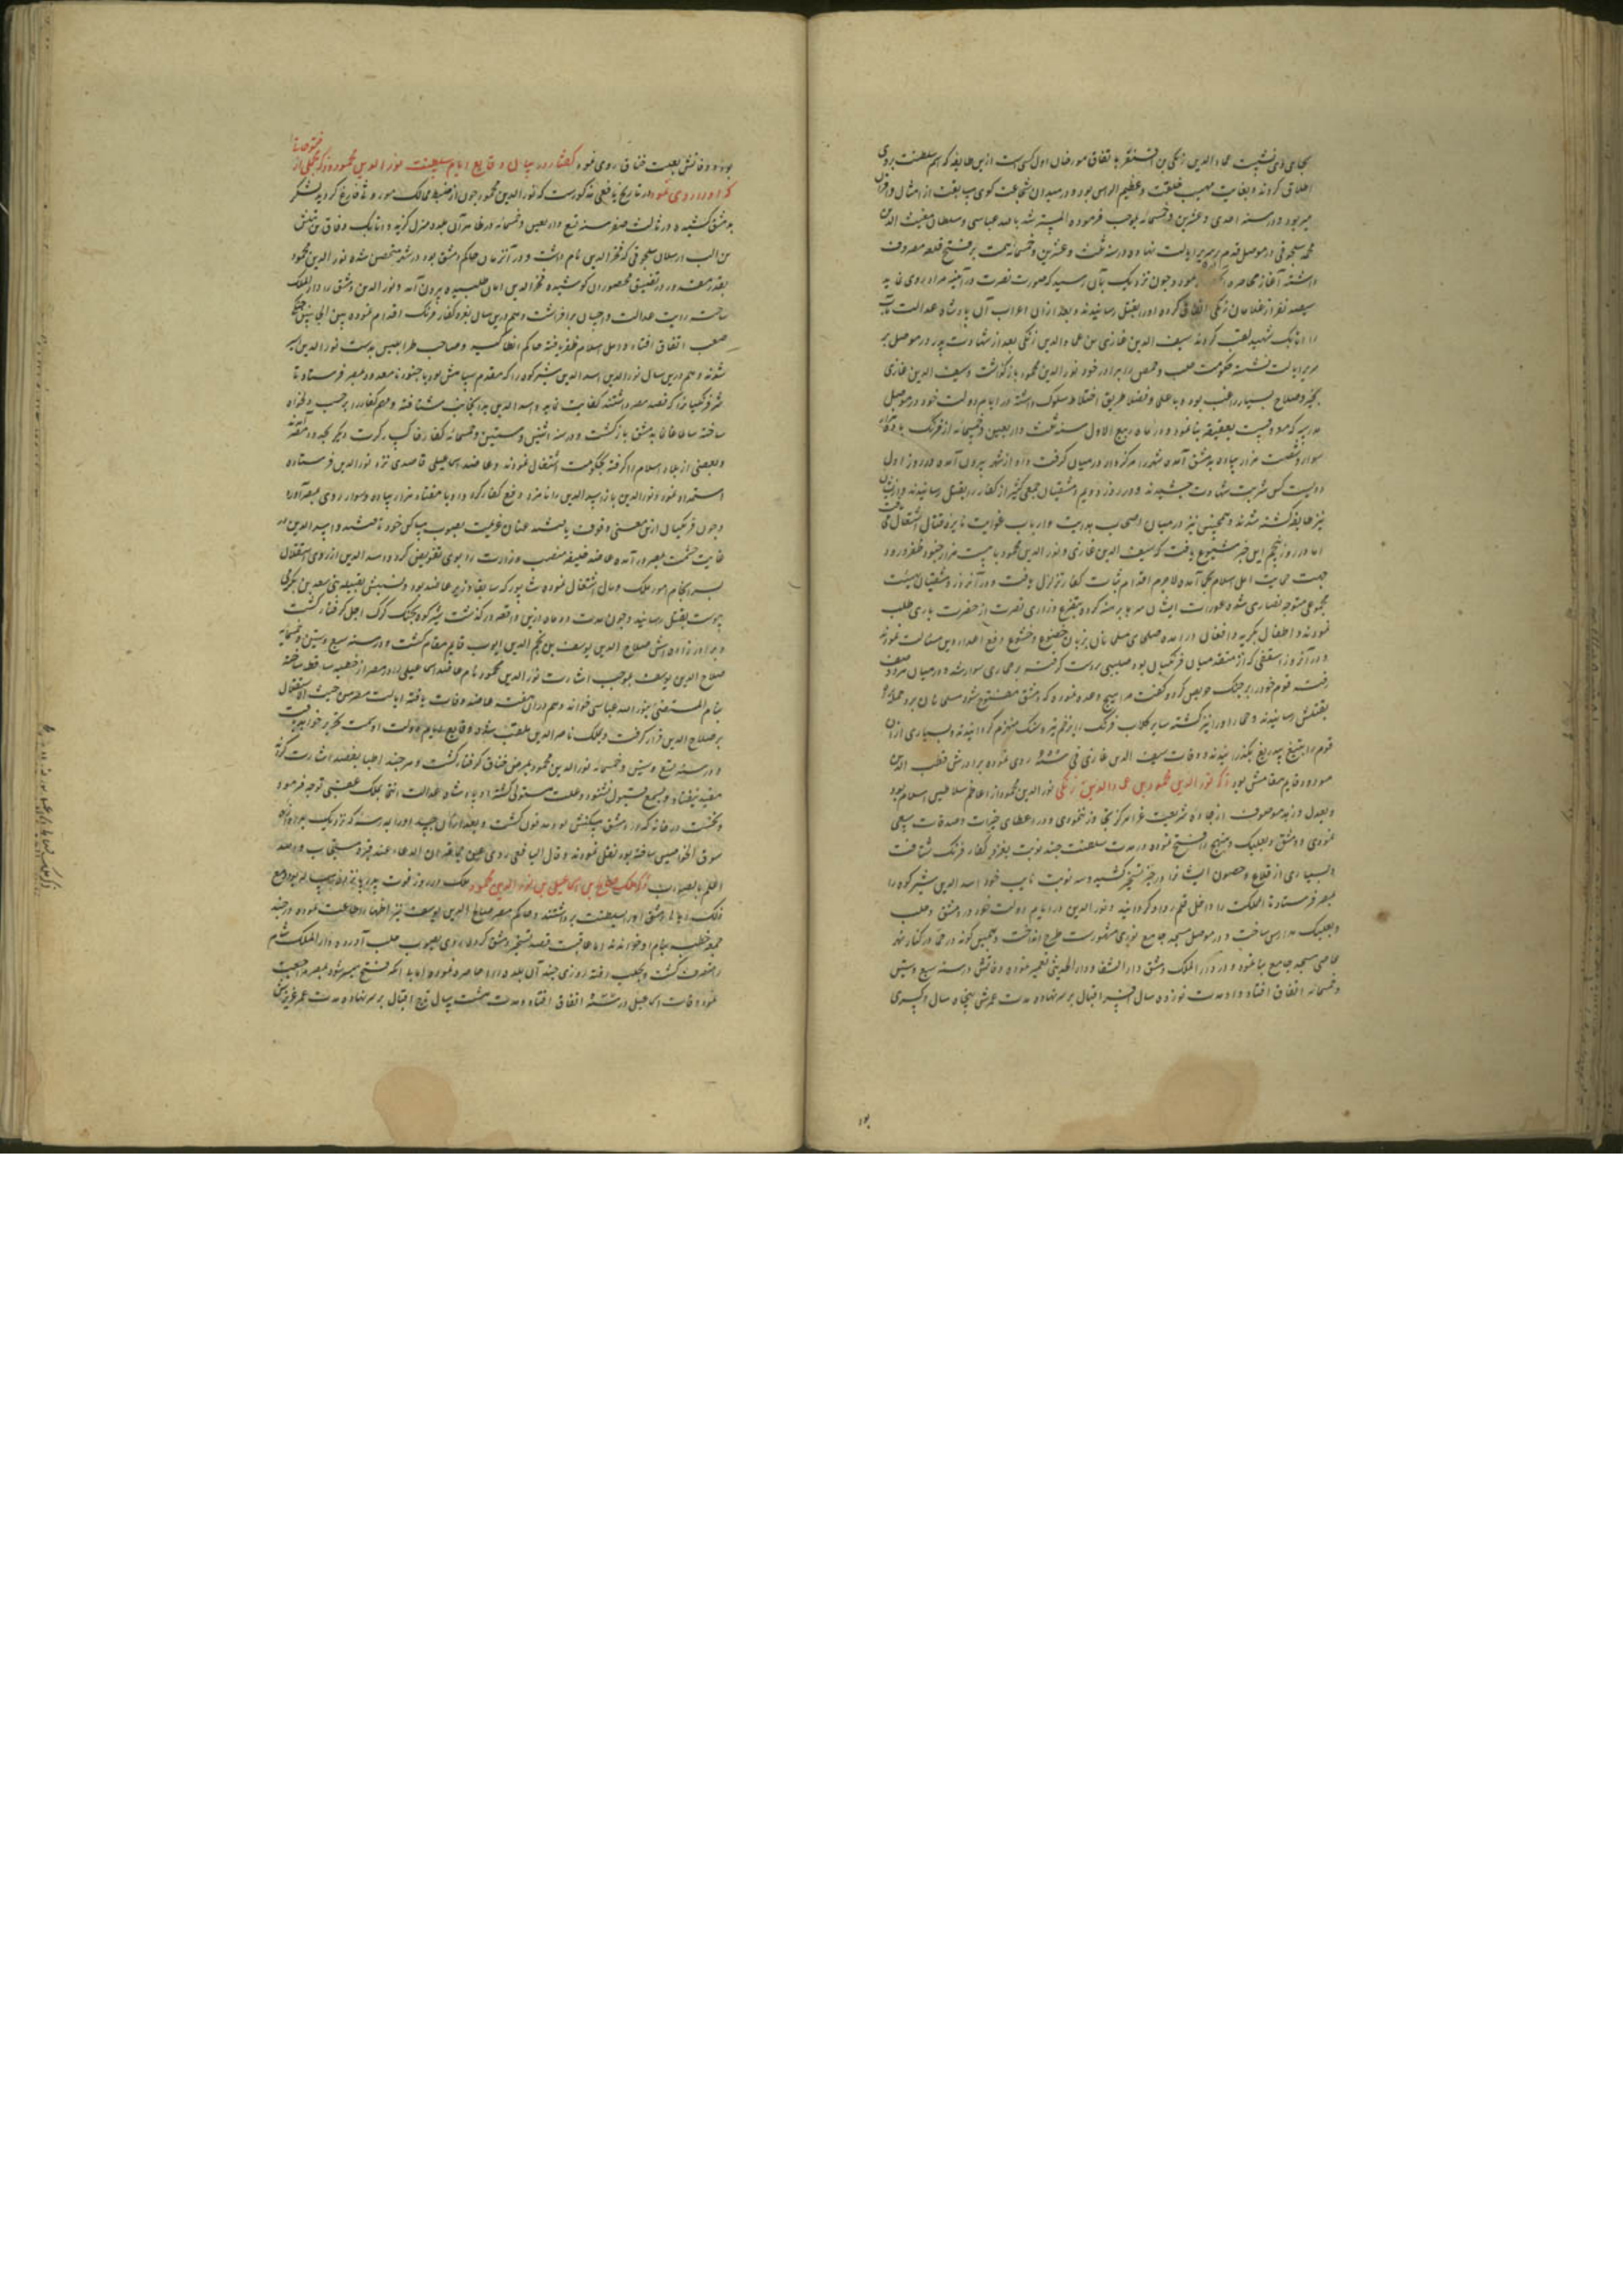 بجای وی نشست عماد الدین زنکی بن اقسنقر باتفاق مورخان اول کسی است ازین طایفه که اسم سلطنت بروی
اطلاق کردند و بغایت مهیب خلقت و عظیم الراس بود و در میدان شجاعت کوی مسابقت از امثال و اقران
میربود و در سنه احدی و عشرین و خمسمایه بموجب فرموده المسترشد بالله عباسی و سلطان مغیث الدین
محمد سلجوقی در موصل قدم بر سریر ایالت نهاد و در سنه ثلث و عشرین و خمسمایه همت بر فتح قلعه معروف
داشته آغاز محاصره نمود و چون نزدیک بآن رسید که صورت نصرت در آینه مراد روی نماید
سیصد نفر از غلامان زنکی اتفاق کرده او را بقتل رسانیدند و بعد از ان اعراب آن پادشاه عدالت مآب
را اتابک شهید لقب کردند سیف الدین غازی بن عماد الدین زنکی بعد از شهادت پدر در موصل بر
سریر ایالت نشسته حکومت حلب و حمص را ببرادر خود نور الدین محمود بازگذاشت و سیف الدین غازی
بخیر و صلاح بسیار راغب بود و با علما و فضلا طریق اختلاط مسلوک داشته در ایام دولت خود در موصل
مدرسه که موسومست بعتیقه بنا نمود و در ماه ربیع الاول سنه ثلث و اربعین و خمسمایه از فرنک
سوار و شصت هزار پیاده بدمشق آمده شهر را مرکزوار در میان گرفت و از شهر بیرون آمده در روز اول
دویست کس شربت شهادت چشیدند و در روز دویم دمشقیان جمعی کثیر از کفار را بقتل رسانیدند و از ایشان
نیز طایفه کشته شدند و همچنین نیز در میان اصحاب هدایت و ارباب غوایت نایره قتال اشتعال می یافت
اما در روز پنجم این خبر شیوع یافت که سیف الدین غازی و نور الدین محمود با بیست هزار جنود ظفر ورود
جهت حمایت اهل اسلام می آیند لاجرم اقدام ثبات کفار تزلزل یافت و در آنروز دمشقیان بهیئت
مجموعی متوجه نصاری شده عورات ایشان سرها برهنه کرده بتضرع و زاری نصرت از حضرت باری طلب
نمودند و اطفال بگریه و افغان در آمده صلحای مسلمانان بزبان خضوع و خشوع دفع اعداء دین مسالت نمودند
و در آنروز اسقفی که از مقتدیان فرنکیان بود صلیبی بدست گرفته بر حماری سوار شد و در میان صف
رفته قوم خود را بر جنگ حریص کرد و گفت مرا مسیح وعده نموده که دمشق مفتوح شود مسلمانان برو حمله کرده
بقتلش رسانیدند و حمار او را نیز کشته سایر کلاب فرنک را بزخم تیر و سنک منهزم گردانیدند و بسیاری از آن
قوم را بتیغ بیدریغ بگذرانیدند و وفات سیف الدین غازی فی سنه روی نموده برادرش قطب الدین
مودود قایم مقامش بود ذکر نور الدین محمود بن عماد الدین زنکی نور الدین محمود از اعاظم سلاطین اسلام بود
و بعدل و زهد موصوف از جاده شریعت غرا هرگز تجاوز ننمودی و در اعطای خیرات و صدقات سعی
نمودی و دمشق و بعلبک و منبج را فتح نموده در مدت سلطنت چند نوبت بغزو کفار فرنک شتافت
و بسیاری از قلاع و حصون ایشانرا در حیز تسخیر کشید و سه نوبت نایب خود اسد الدین شیرکوه را
بمصر فرستاد تا آن مملکت را داخل قلمرو او گردانید و نور الدین در ایام دولت خود در دمشق و حلب
و بعلبک مدارس ساخت و در موصل مسجد جامع نوری مشهورست طرح انداخت و همچنین در حما در کنار نهر
عاصی مسجد جامع بنا نمود و در دار الملک دمشق دار الشفا و دار الحدیثی تعمیر نموده وفاتش در سنه تسع و ستین
و خمسمایه اتفاق افتاد و او مدت نوزده سال افسر اقبال بر سر نهاده مدت عمرش پنجاه سال و کسری
بود
بود و وفاتش بعلت خناق روی نموده گفتار در بیان وقایع ایام سلطنت نور الدین محمود و ذکر مجملی از فتوحاتی
که او را روی نمود در تاریخ یافعی مذکورست که نور الدین محمود چون از ضبط ممالک موروث فارغ گردید لشکر
بدمشق کشیده در ثالث صفر سنه تسع و اربعین و خمسمایه در ظاهر آن بلده منزل گزید و اتابک
بن الب ارسلان سلجوقی که فخر الدین نام داشت و در آنزمان حاکم دمشق بود در شهر متحصن شده نور الدین محمود
بقدر مقدور در تضییق محصوران کوشیده فخر الدین امان طلبیده بیرون آمد و نور الدین دمشق را دار الملک
ساخته رایت عدالت و احسان برافراشت و هم درین سال بغزو کفار فرنک اقدام نموده بین الجانبین جنگ
صعب اتفاق افتاد و اهل اسلام ظفر یافته حاکم انطاکیه و صاحب طرابلس بدست نور الدین اسیر
شدند و هم درین سال نور الدین اسد الدین شیرکوه را که مقدم سپاهش بود با جنود نامعدود بمصر فرستاد تا
شر فرنکیانرا که قصد مصر داشتند کفایت نماید و اسد الدین بدانجانب شتافته و مهم کفار را بر حسب دلخواه
ساخته سالما غانما بدمشق بازگشت و در سنه اثنین و ستین و خمسمایه کفار کرت دیگر بحدود مصر رفته
و بعضی از بلاد اسلام را گرفته بحکومت اشتغال نمودند و عاضد اسماعیلی قاصدی نزد نور الدین فرستاده
استمداد نمود و نور الدین باز اسد الدین را نامزد دفع کفار کرد و او با هفتاد هزار پیاده و سوار روی بمصر آورد
و چون فرنکیان ازین معنی وقوف یافتند عنان عزیمت بصوب مساکن خود تافتند و اسد الدین در
غایت حشمت بمصر در آمده عاضد خلیفه منصب وزارت را بوی تفویض کرد و اسد الدین از روی استقلال
بسرانجام امور ملک و مال اشتغال نموده شاپور که سابقا وزیر عاضد بود و نسبتش بقبیله بنی سعد بن بکر می
پیوست بقتل رسانید و چون مدت دو ماه ازین واقعه درگذشت شیرکوه بچنک گرگ اجل گرفتار گشت
و برادرزاده اش صلاح الدین یوسف بن نجم الدین ایوب قایم مقام گشت و در سنه سبع و ستین و خمسمایه
صلاح الدین یوسف بموجب اشارت نور الدین محمود نام عاضد اسماعیلی را در مصر از خطبه ساقط ساخته
بنام المستضیء بنور الله عباسی خواند و هم در آن هفته عاضد وفات یافته ایالت مصر من حیث الاستقلال
بر صلاح الدین قرار گرفت و بملک ناصر الدین ملقب شد و وقایع ایام دولت او سمت تحریر خواهد یافت
و در سنه تسع و ستین و خمسمایه نور الدین محمود بمرض خناق گرفتار گشت و هر چند اطبا بفصد اشارت کردند
مفید نیفتاد و بسمع قبول نشنود و علت مستولی گشته آن پادشاه عدالت انتما بملک عقبی توجه فرمود
و نخست در خانه که در دمشق مسکنش بود مدفون گشت و بعد از آن جسد او را بمدرسه که نزدیک بدروازه
سوق الخواصین ساخته بود نقل نمودند و قال الیافعی روی عن جماعة ان الدعاء عند قبره مستجاب و الله
اعلم بالصواب ذکر ملک صالح بن اسماعیل بن نور الدین محمود ملک در روز فوت پدر یازده ساله بود و مع
ذلک اهالی دمشق او را بسلطنت برداشتند و حاکم مصر صلاح الدین یوسف نیز اظهار اطاعت نموده در چند
جمعه خطبه بنام او خواندند اما عاقبت قصد تسخیر دمشق کرد و بصوب حلب آورده دار الملک شام
را متصرف گشت و بحلب رفته روزی چند آن بلده را محاصره نموده اما بی آنکه فتح میسر شود بمصر مراجعت
نمود وفات اسماعیل در سنه اتفاق افتاد و مدت هشت سال تاج اقبال بر سر نهاده مدت عمر عزیزش